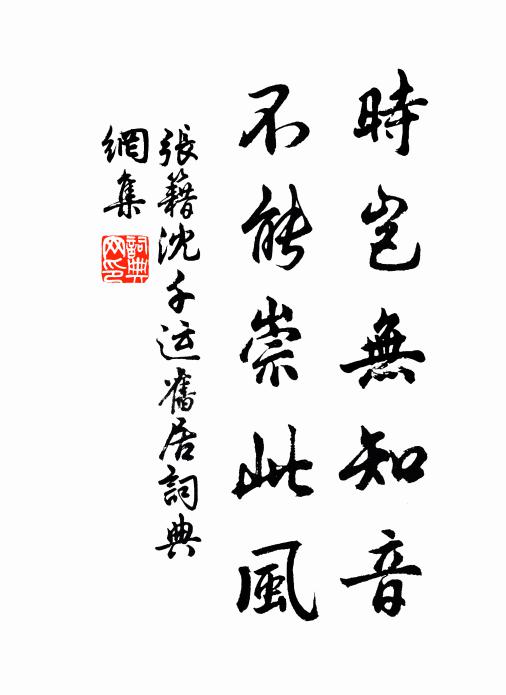 時豈無知音
不能崇此風
張籍沈千运舊居詞典
網集
詞典
网印